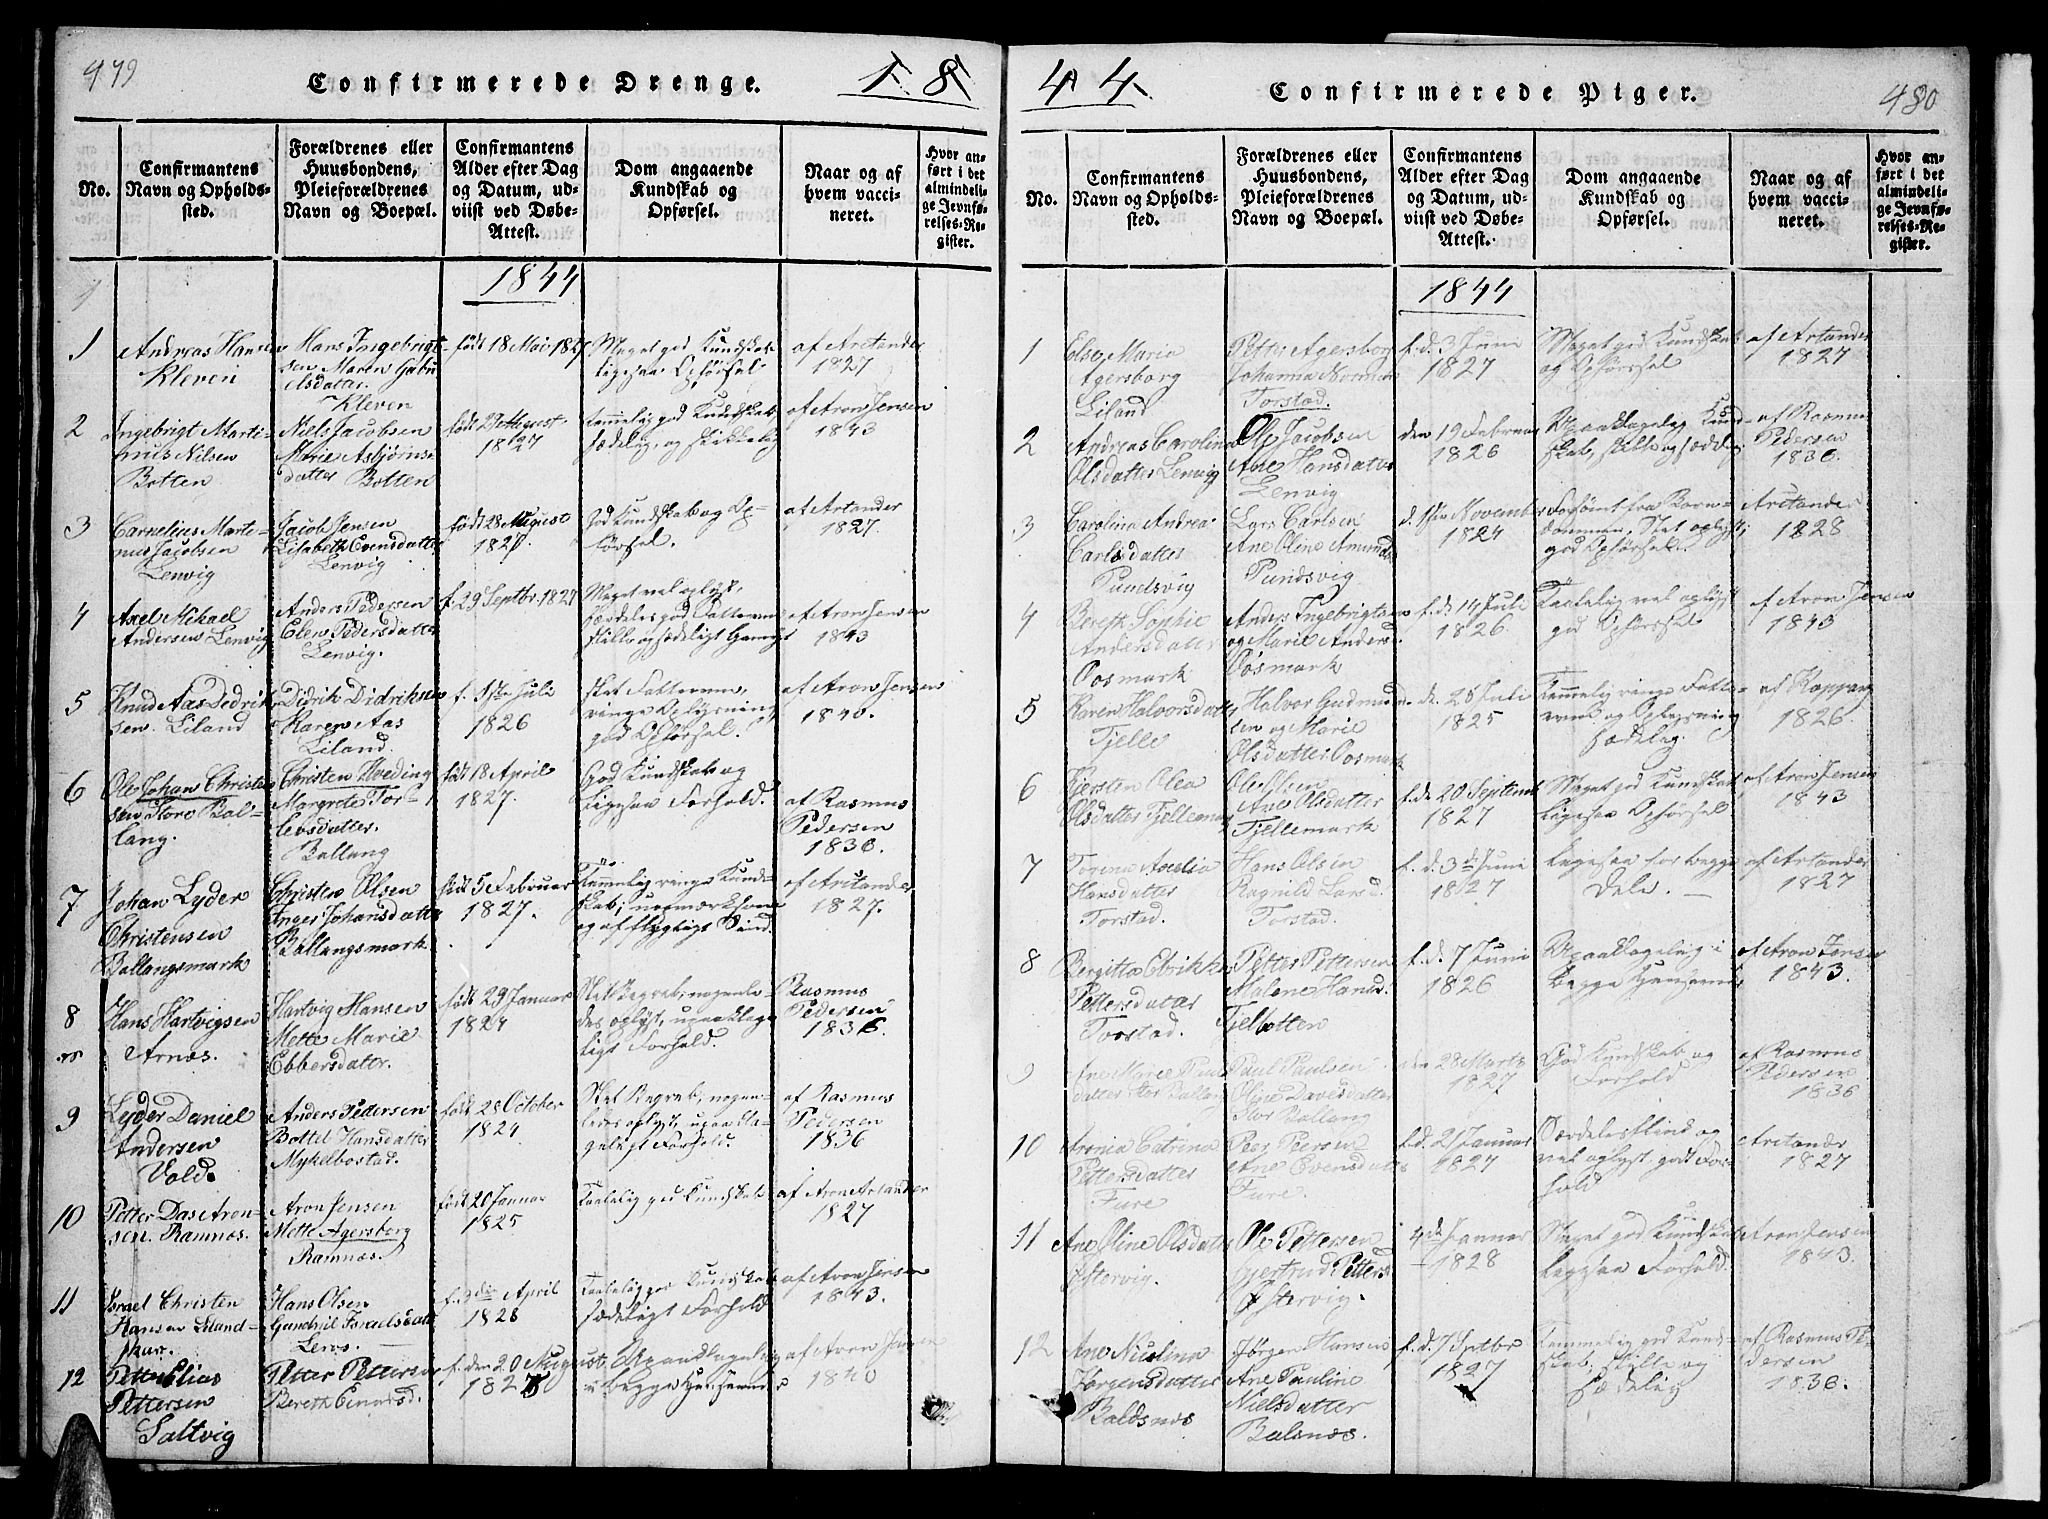 479
Confirmerede Drenge.
18
No.
Confirmantens
Navn og Opholds-
sted.
Forældrenes eller
Huusbondens,
Pleieforældrenes
Navn og Boepæl.
Confirmantens
Alder efter Dag
og Datum, ud-
viist ved Døbe-
Attest.
Dom angaaende
Kundskab og
Opførsel.
Naar og af
hvem vacci-
neret.
Hvor an-
ført i det
almindeli-
ge Jevnfø-
relses-Re-
gister.
1844
1
Andreas Hansen
Kleven
Hans Ingebrigt-
sen Maren Gabri
elsdatter
Kleven
født 18 Mai 1827
Meget god Kundskab
ligesaa Opførsel
af Arctander
1827
2
Ingebrigt Marti-
nus Nilsen
Botten
Niels Jacobsen
Marie Asbjørns-
datter Botten
født 27 August
1827
temmelig god Kundskab
sædelig og skikkelig
af Aron Jensen
1843
3
Cornelius Marte-
nus Jacobsen
Lenvig
Jacob Jensen
Lisabeth Evensdatter
Lenvig
født 28 August
1827
God Kundskab og Op-
førsel.
af Artander
1827.
4
Axel Mikael
Andersen Lenvig
Anders Pedersen
Elen Pedersdatter
Lenvig.
f. 29 Septbr. 1827
Meget vel oplyst,
af Aron Jensen
1843
5
Knud Aas Dedrik-
sen Liland
Didrik Didriksen
Karen Aas
Liland.
f. 1ste Juli
1826
slet Fatteevne,
ringe Oplysning
god Opførsel.
af Aron Jensen
1840.
6
Ole Johan Christen
sen Store Bal-
lang.
Christen Hveding
Margrete Tor-
levsdatter.
Ballang
født 18 April
1827.
God Kundskab og
ligesaa Forhold.
af Rasmus
Pedersen
1836.
7
Johan Lyder
Christensen
Ballangsmark
Christen Olsen
Inger Johansdatter
Ballangsmark
født 5 Februar
1827.
Temmelig ringe Kund-
skab; uopmærksom
og af flygtigt Sind.
af Arctander
1827.
8
Hans Hartvigsen
Arnæs.
Hartvig Hansen
Mette Marie
Ebbersdatter.
født 29 Januar
1824
Slet Begreb, nogenle-
des oplyst, upaaklage
ligt Forhold.
Rasmus
Pedersen
1836
9
Lyder Daniel
Andersen
Vold.
Anders Pedersen
Bottel Hansdatter
Mykelbostad.
født 28 October
1824
Slet Begreb, nogen-
ledes oplyst, upaakla-
geligt Forhold.
af Rasmus
Pedersen
1836
10
Petter Das Aron-
sen. Ramnæs.
Aron Jensen
Mette Agersborg
Ramnæs.
født 20 Januar
1825
Taalelig god Kundskab
af Aron Artander
1827
11
Israel Christen
Hansen Liland-
skar.
Hans Olsen
Gundril Israelsdatt
Leros.
f. 2den April
1828
Taalelig god Kundskab
sædeligt Forhold
af Aron Jensen
1843.
12
Petter Elias
Pettersen
Saltvig
Petter Pettersen
Bereth Einarsd.
f. den 20 August
1828
Upaaklagelig
i begge Henseender
af Aron Jensen
1840
44
Confirmerede Piger.
480
No.
Confirmantens
Navn og Opholds-
sted.
Forældrenes eller
Huusbondens,
Pleieforældrenes
Navn og Boepæl.
Confirmantens
Alder efter Dag
og Datum, ud-
viist ved Døbe-
Attest.
Dom angaaende
Kundskab og
Opførsel.
Naar og af
hvem vacci-
neret.
Hvor an-
ført i det
almindeli-
ge Jevnfø-
relses-Re-
gister.
1844
1
Else Maria
Agersborg
Liland
Petter Agersborg
Johanna Norman
Torstad.
f. d. 3 Juni
1827
Meget god Kundskab
og Opførssel
af Artander
1827
2
Andreas Carolina
Olsdatter Lenvig
Ole Jacobsen
Ane Hansdatter
Lenvig
den 19 Februar
1826
Upaaklagelig Kund-
skab, stille og sædelig
af Rasmus
Pedersen
1836.
3
Carolina Andrea
Carlsdatter
Pundsvig
Lars Carlsen
Ane Oline Amunds
Pundsvig
November
1824
Forsømt fra Barn-
dommen. Slet oplyst;
god Opførsel.
Arctander
1828
4
Bereth Sophie
Andersdatter
Oosmark
Anders Ingebrigtsen
og Marie Anders.
Oosmark
f. d. 14 Juli
1826.
Taalelig vel oplyst
god Opførssel
af Aron Jensen
1843
5
Karen Halvorsdatter
Fjelle
Halvor Gudmund-
sen og Marie
Olsdatter Oosmark
de. 25 Juli
1825
Temmelig ringe Fatte-
evne og Oplysning
sædelig.
af Rappang
1826.
6
Kjersten Olea
Olsdatter Fjellemark
Ole Olsen
Ane Olsdatter
Fjellemark
f. de 20 Septembr
1827
Meget god Kundskab
ligesaa Opførssel
af Aron Jensen
1843
7
Torina Amelia
Hansdatter
Torstad.
Hans Olsen
Ragnild Larsd
Torstad.
f. d. 3de Juni
1827
Ligesaa for begge
Dele. —
af Artander
1827
8
Bergitta Olrikke
Pettersdatter
Torstad.
Petter Pettersen
Malene Hansd.
Fjelbotten
f. d. 7 Juni
1826
Upaaklagelig i
begge Henseender
af Aron Jensen
1843.
9
Ane Marie Paul
datter Stor Ballang
Paul Paulsen
Oline Davidsdatter
Stor Ballang
den 28 Marts
1827
God Kundskab og
Forhold
af Rasmus
Pedersen
1836
10
Aronia Catrina
Pettersdatter
Fure
Peer Peersen
Ane Evensdatter
Fure.
f. d. 21 Januar
1827
vel oplyst, godt For-
hold
Arctander
1827
11
Ane Oline Olsdatter
Østervig.
Ole Pettersen
Gjertrud Petters
Østervig.
4de Januar
1828
Meget god Kundskab
ligesaa Forhold.
Aron Jensen
1843.
12
Ane Nicolina
Jørgensdatter
Baldsnæs
Jørgen Hansen
Ane Pauline
Nielsdatter
Balsnæs.
f. d. 7 Septbr
1827
Temmelig god Kund-
skab, stille og
sædelig
af Rasmus Pe-
dersen
1836.